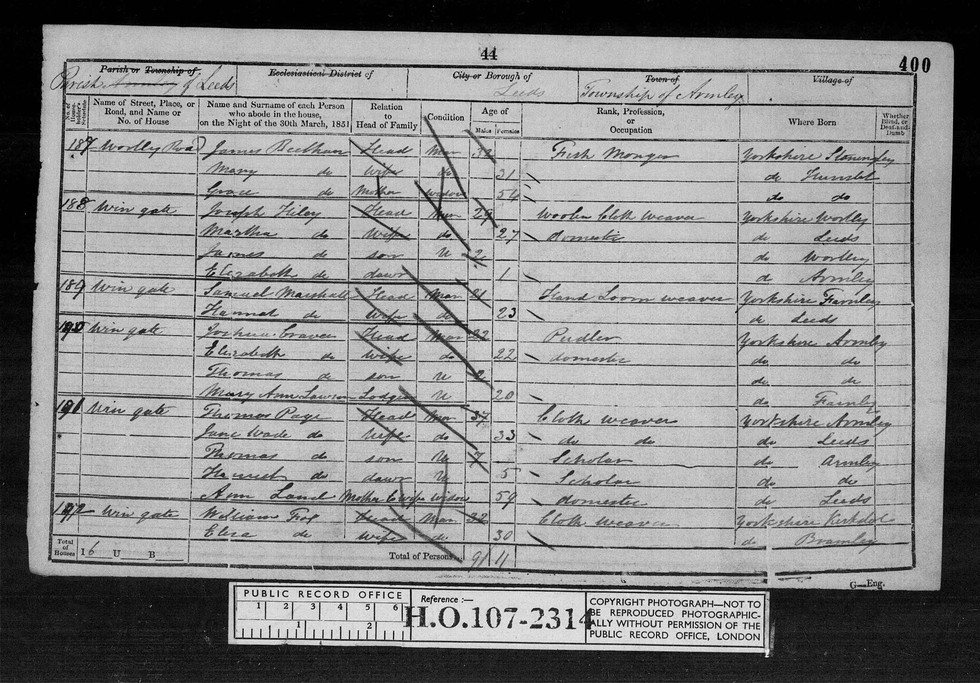 44
400
Parish or Township of
Ecclesiastical District of
City or Borough of
Town of
Village of
Parish of Leeds
Leeds
Township of Armley
No. of House-holder's Schedule
Name of Street, Place, or Road, and Name or No. of House
Name and Surname of each Person who abode in the house, on the Night of the 30th March, 1851
Relation to Head of Family
Condition
Age of
Males
Females
Rank, Profession, or Occupation
Where Born
Whether Blind, or Deaf-and-Dumb
187 Wortley Road James Head Mar 32 Fish Monger Yorkshire Stanningley
Mary do wife do 31 do Hunslet
Grace do Mother widow 54 do do
188 Win gate Joseph Filey Head Mar 29 Woolen Cloth Weaver Yorkshire Wortley
Martha do Wife do 27 domestic do Leeds
James do son U 2 do Wortley
Elizabeth do dawr 1 do Armley
189 Win gate Samuel Marshall Head Mar 21 Hand Loom weaver Yorkshire Farnley
Hannah do Wife do 23 do Leeds
190 Win gate Joshua Craven Head Mar 22 Pudler Yorkshire Armley
Elizabeth do wife do 22 domestic do do
Thomas do son U do do
Mary Ann Lawson Lodger U 20 do Farnley
191 Win gate Thomas Page Head Mar 37 Cloth weaver Yorkshire Armley
Jane Wade do wife do 33 do do do Leeds
Thomas do son U 7 Scholar do Armley
Harriet do dawr U 5 Scholar do do
Ann Land Mother wife widow 59 domestic do Leeds
192 Win gate William Head Mar 32 Cloth weaver Yorkshire
Eliza do wife do 30 do Bramley
Total of Houses
I 6 U B
Total of Persons
9 11
G—Eng.
PUBLIC RECORD OFFICE
1 2 3 4 5 6
1 2
Reference :—
H.O.107-2314
COPYRIGHT PHOTOGRAPH—NOT TO
BE REPRODUCED PHOTOGRAPHIC-
ALLY WITHOUT PERMISSION OF THE
PUBLIC RECORD OFFICE, LONDON